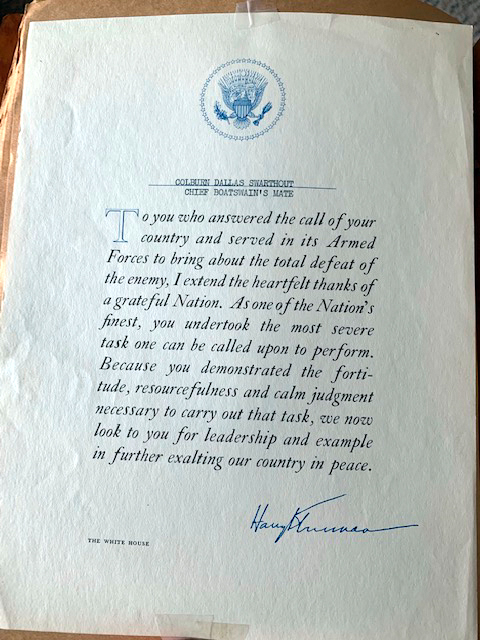 COLBURN DALLAS SWARTHOUT
CHIEF BOATSWAIN'S MATE
To you who answered the call of your
country and served in its Armed
Forces to bring about the total defeat of
the enemy, I extend the heartfelt thanks of
a grateful Nation. As one of the Nation's
finest, you undertook the most severe
task one can be called upon to perform.
Because you demonstrated the forti-
tude, resourcefulness and calm judgment
necessary to carry out that task, we now
look to you for leadership and example
in further exalting our country in peace.
Harry S Truman
THE WHITE HOUSE